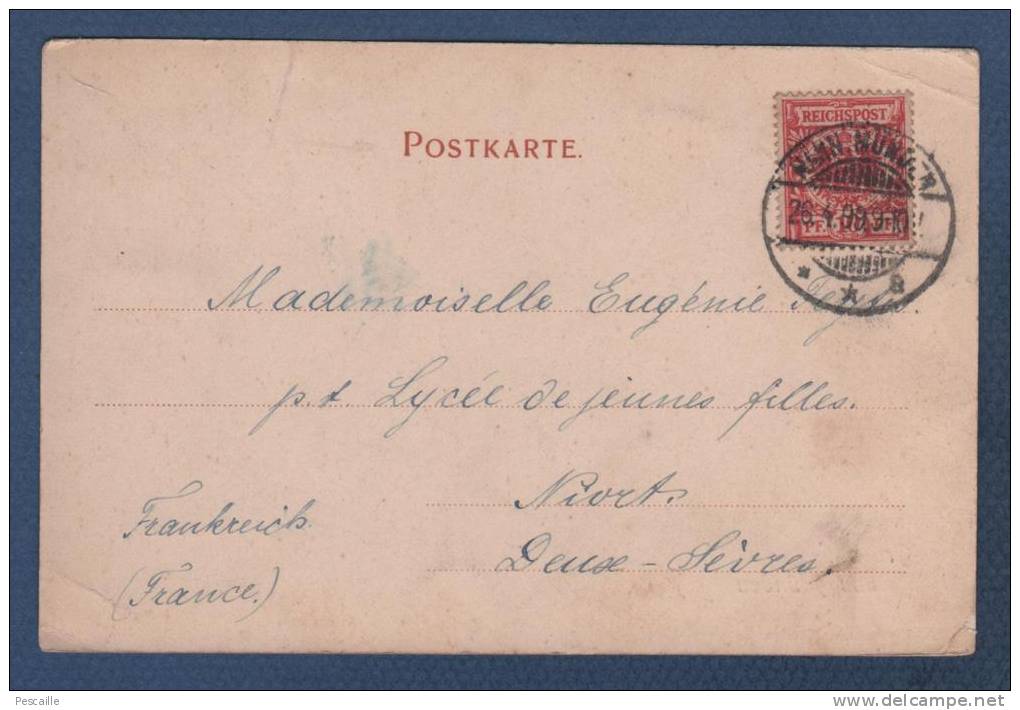 POSTKARTE.
REICHSPOST
HANN. MÜNDEN
26.4.99.9-10V
PF
a
Mademoiselle Eugénie
p.t. Lycée de jeunes filles.
Niort.
Deux-Sèvres.
Frankreich.
(France.)
Pescaille
www.delcampe.net